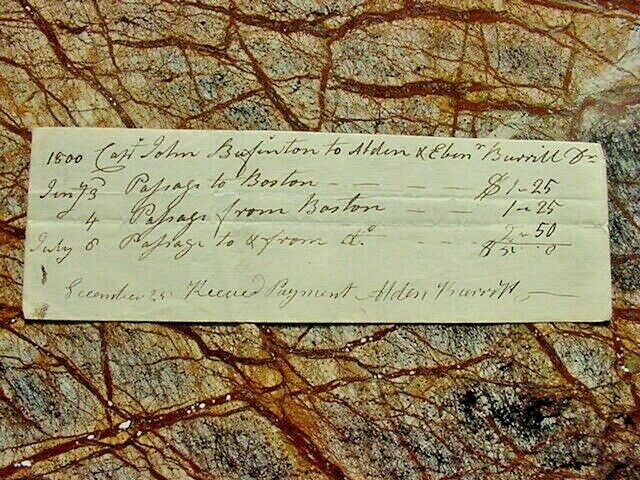 1800 Capt John Bufinton to Alden & Ebenr Burrill Dr
3 Passage to Boston — — — $1-25
4 Passage from Boston — — — 1-25
July 8 Passage to & from do — — 2-50
$5..0
December 25 Receved Payment Alden Burrill